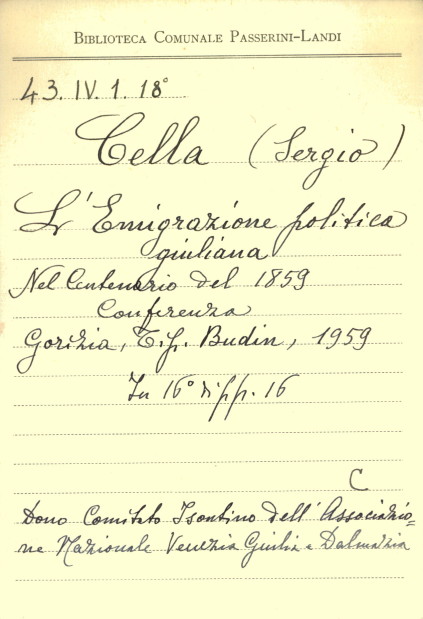 BIBLIOTECA COMUNALE PASSERINI-LANDI
43. IV. 1. 18°
Cella (Sergio)
L'Emigrazione politica
giuliana
Nel Centenario del 1859
Conferenza
Gorizia, T. G. Budin, 1959
In 16° di pp. 16
C
Dono Comitato Isontino dell'Associazio=
ne Nazionale Venezia Giulia e Dalmazia